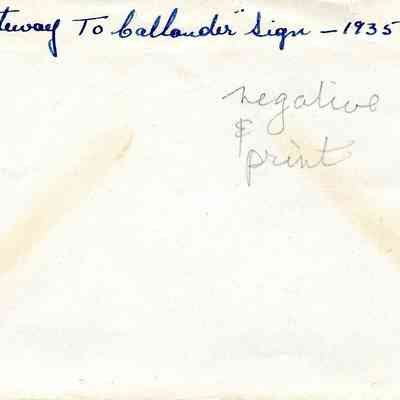 teway To Callander" Sign - 1935
negative
&
print